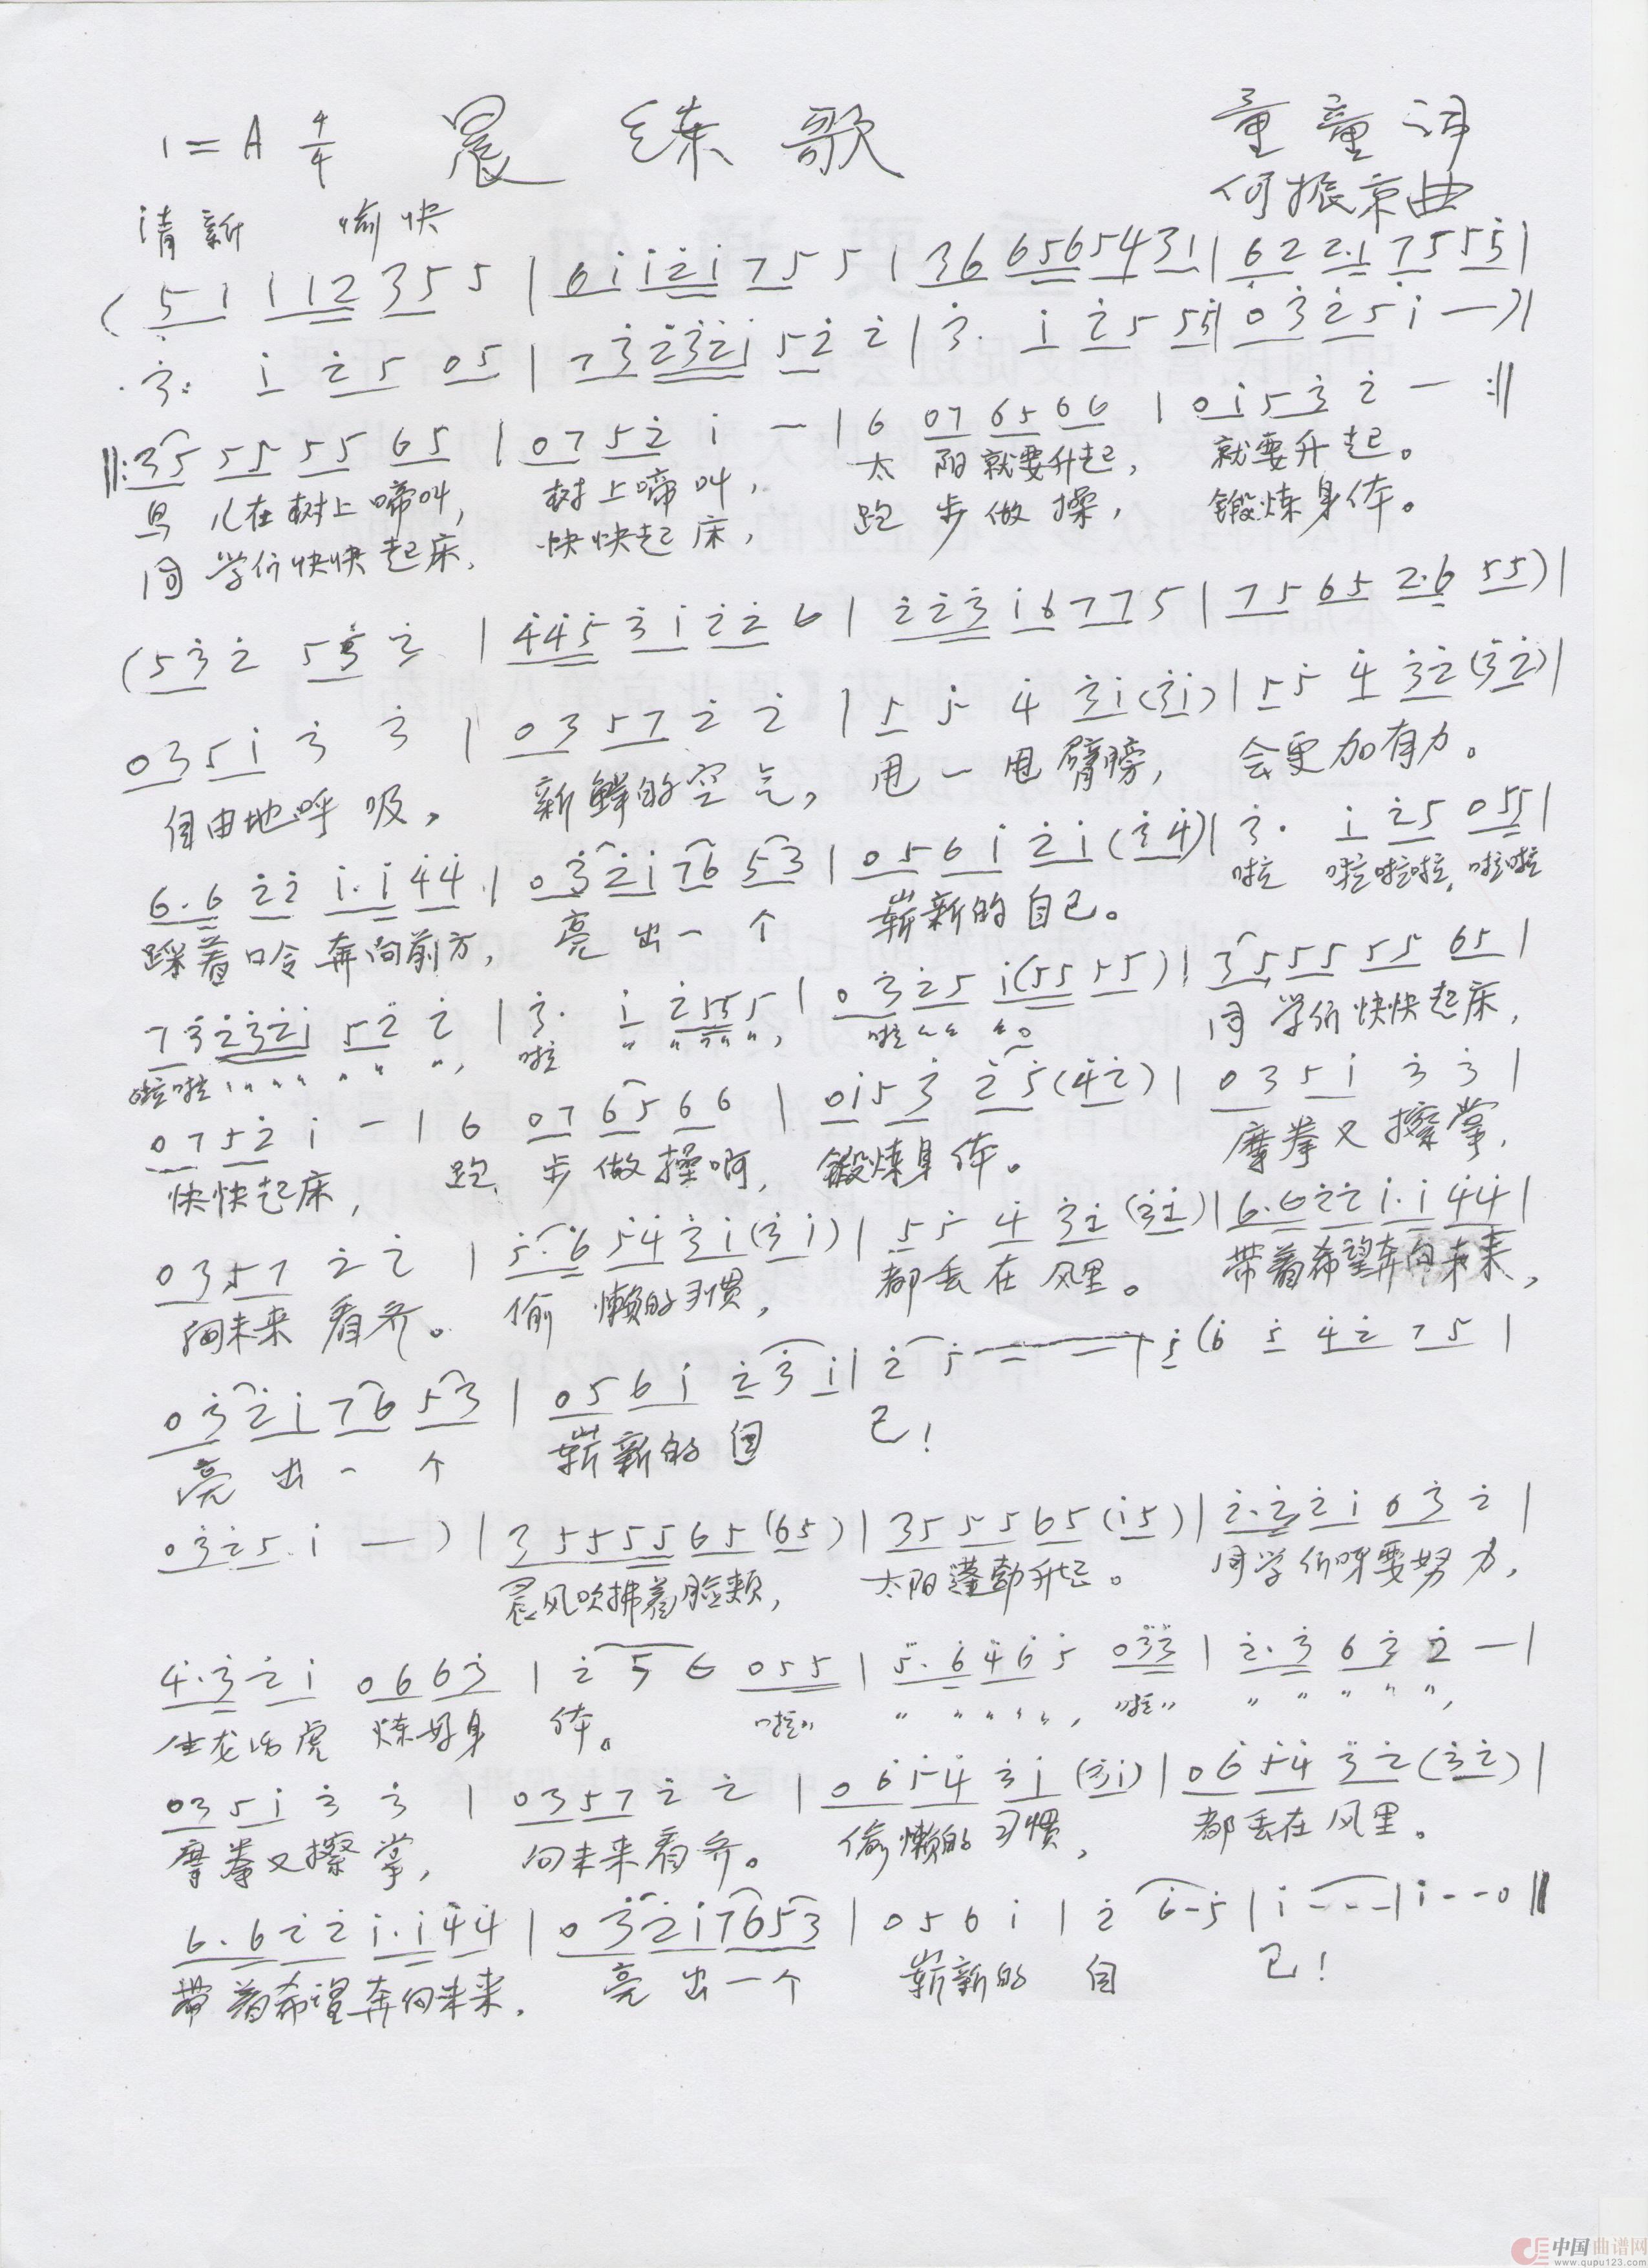 1=A 4/4 晨 练 歌 童 童 词
何振京曲
清新 愉快
( 5 1 1 1 2 3 5 5 | 6 i i 2 i 7 5 5 | 3 6 6 5 6 5 4 3 1 | 6 2 2·1 7 5 5 5 |
3· i 2 5 0 5 | 7 3 2 3 2 i 5 2 2 | 3· i 2 5 5 5 | 0 3 2 5 i — ) |
‖: 3 5 5 5 5 5 6 5 | 0 7 5 2 i — | 6 0 7 6 5 0 6 | 0 i 5 3 2 — :‖
鸟 儿在树上啼叫, 树上啼叫, 太 阳就要升起, 就要升起。
同 学们快快起床, 快快起床, 跑 步做操, 锻炼身体。
( 5 3 2 5 3 2 | 4 4 5 3 i 2 2 6 | 2 2 3 i 6 7 7 5 | 7 5 6 5 2·6 5 5 ) |
0 3 5 i 3 3 | 0 3 5 7 2 2 | 5 5 4 3 i (3 i) | 5 5 4 3 2 (3 2) |
自由地呼吸, 新鲜的空气, 甩一甩臂膀, 会更加有力。
6·6 2 2 i·i 4 4 | 0 3 2 i 7 6 5 3 | 0 5 6 i 2 i (3 4) | 3· i 2 5 0 5 5 |
踩着口令奔向前方, 亮出一个 崭新的自己。 啦 啦啦啦, 啦啦
7 3 2 3 2 i 5 2 2 | 3· i 2 5 5 5 | 0 3 2 5 i (5 5 5 5) | 3 5 5 5 5 5 6 5 |
啦啦 〃 〃 〃 〃 〃 〃 〃, 啦 〃 〃 〃 〃 〃, 啦 〃 〃 〃。 同 学们快快起床,
0 7 5 2 i — | 6 0 7 6 5 6 6 | 0 i 5 3 2 5 (4 2) | 0 3 5 i 3 3 |
快快起床, 跑 步做操啊, 锻炼身体。 摩拳又擦掌,
0 3 5 7 2 2 | 5·6 5 4 3 i (3 i) | 5 5 4 3 2 (3 2) | 6·6 2 2 i·i 4 4 |
向未来看齐。 偷懒的习惯, 都丢在风里。 带着希望奔向未来,
0 3 2 i 7 6 5 3 | 0 5 6 i 2 3 i | 2 5 — — — | 5 (6 5 4 2 7 5 |
亮出一个 崭新的自 己!
0 3 2 5 i — ) | 3 5 5 5 5 6 5 (6 5) | 3 5 5 5 6 5 (i 5) | 2·2 2 i 0 3 2 |
晨风吹拂着脸颊, 太阳蓬勃升起。 同学们呀要努力,
4·3 2 i 0 6 6 3 | 2 5 6 0 5 5 | 5·6 4 6 5 0 3 3 | 2·3 6 3 2 — |
生龙活虎 炼好身 体。 啦〃 〃 〃 〃 〃 〃, 啦〃 〃 〃 〃 〃 〃,
0 3 5 i 3 3 | 0 3 5 7 2 2 | 0 6 5 4 3 i (3 i) | 0 6 5 4 3 2 (3 2) |
摩拳又擦掌, 向未来看齐。 偷懒的习惯, 都丢在风里。
6·6 2 2 i·i 4 4 | 0 3 2 i 7 6 5 3 | 0 5 6 i | 2 6 — 5 | i — — — | i — — 0 ‖
带着希望奔向未来, 亮出一个 崭新的 自 己!
中国曲谱网
www.qupu123.com